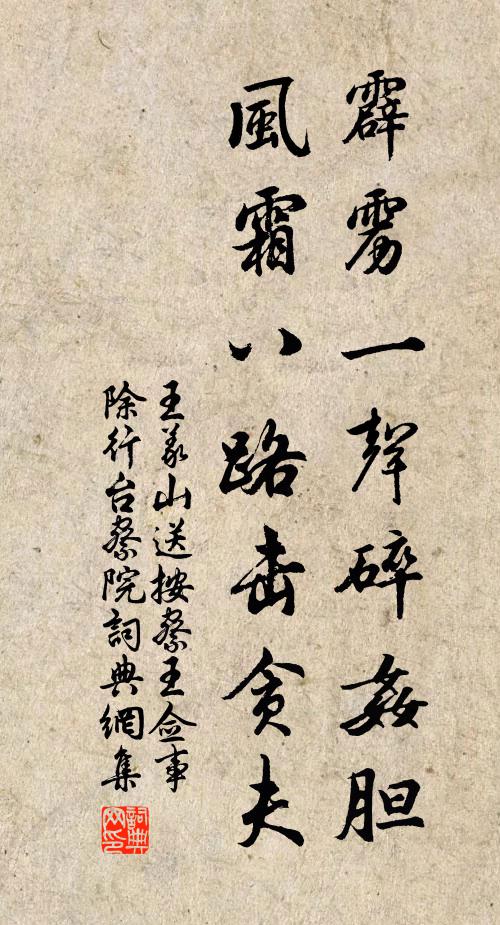 霹雳一聲碎姦胆
風霜八路击贪夫
王義山送按察王佥事
除行台察院詞典網集
詞典
网印